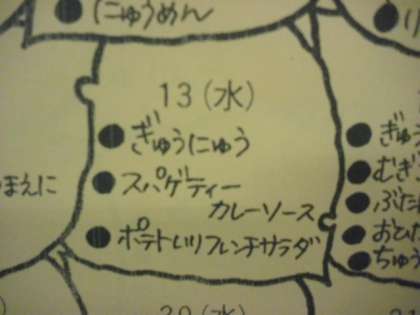 ●にゅうめん
13(水)
●ぎゅうにゅう
●スパゲティー
カレーソース
●ポテトいりフレンチサラダ
ほえに
●ぎゅう
●むぎご
●ぶた
●おひた
●ちゅう
20(水)